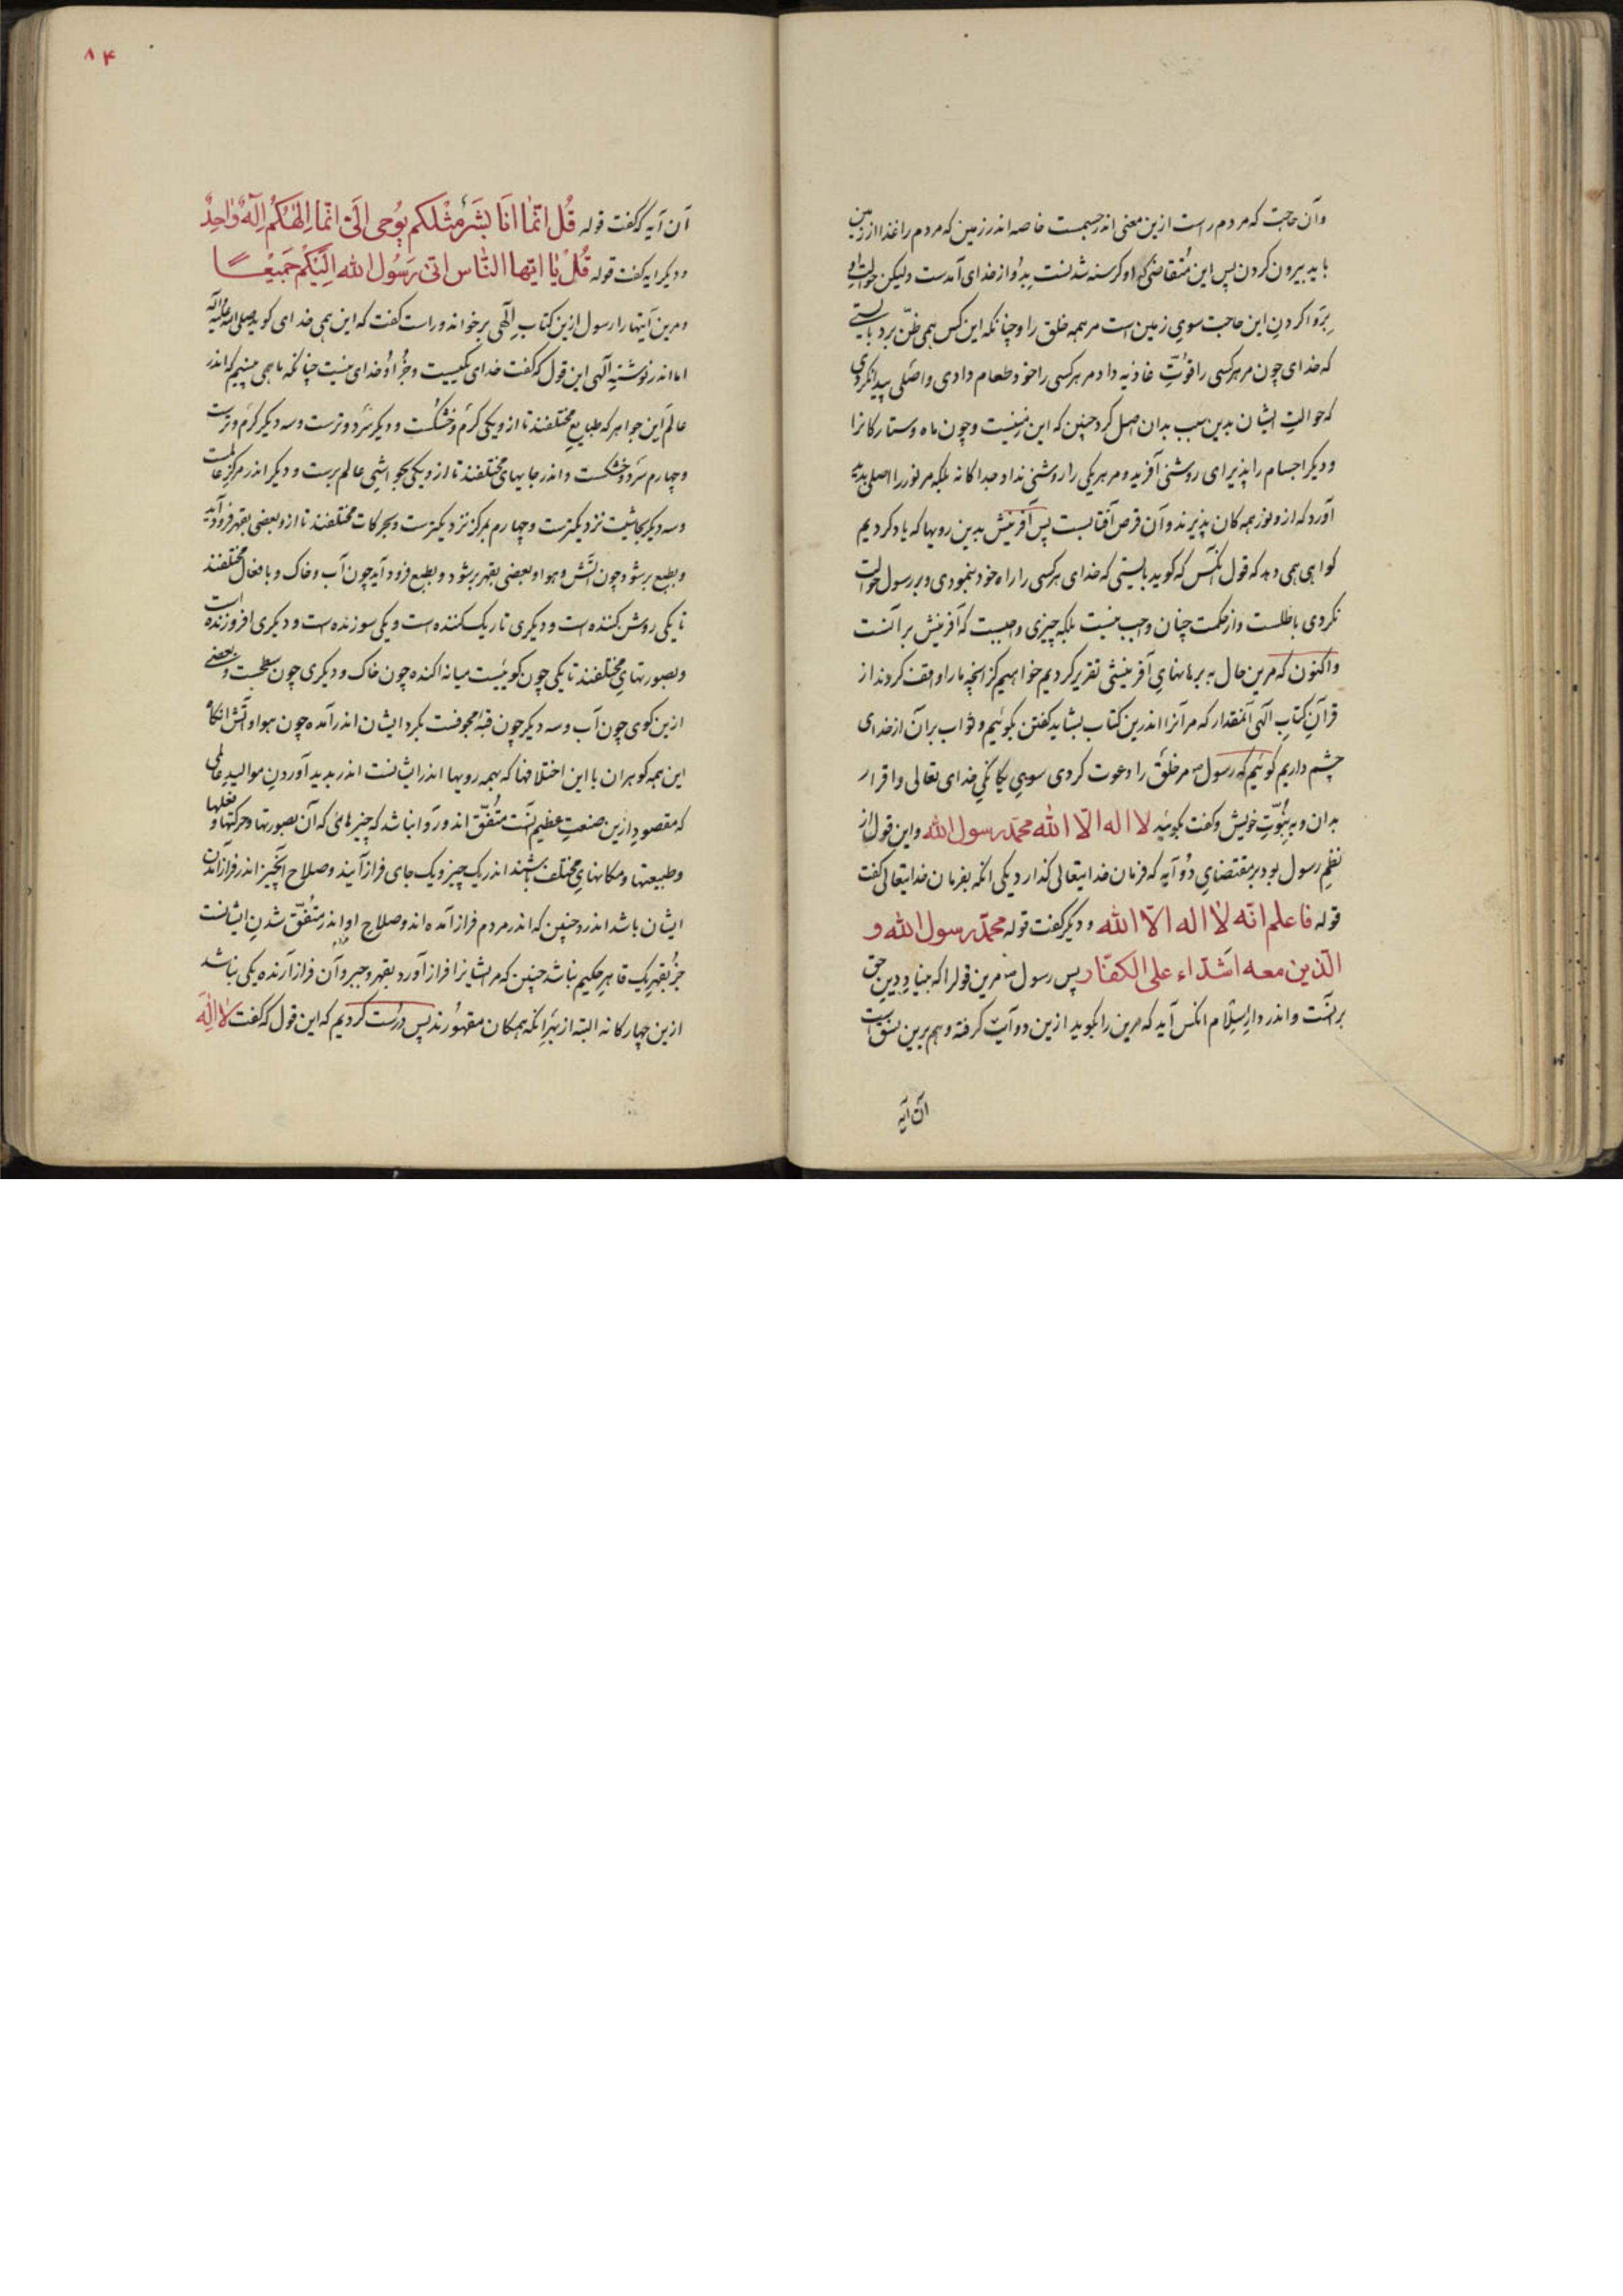 وآن حاجت که مردم راست ازین معنی اندر جسمست خاصه اندر زمین که مردم را غذا از زمین
باید بیرون کردن پس این متقاضی که او گرسنه شدنست بدو از خدای آمدست ولیکن حوالت او
بروا کردن این حاجت سوی زمین است مر همه خلق را وچنانکه این کس همی ظن برد بایستی
که خدای چون مر هر کسی را قوت غاذیه داد مر هر کسی را خود طعام دادی واصلی پیدا نکردی
که حوالت ایشان بدین سبب بدان اصل کرد چنین که این زمینست وچون ماه وستارکانرا
ودیکر اجسام را پذیرای روشنی آفرید ومر هر یکی را روشنی نداد جداکانه بلکه مر نور را اصلی پدید
آورد که ازو نور همه کان پذیرند وآن قرص آفتابست پس آفرینش بدین رویها که یاد کردیم
کواهی همی دهد که قول آنکس که کوید بایستی که خدای هر کسی را راه خود بنمودی وبر رسول حوالت
نکردی باطلست واز حکمت چنان واجب نیست بلکه چیزی واجبست که آفرینش بر آنست
واکنون که مرین حال به برهانهای آفرینشی تقریر کردیم خواهیم کز آنچه ما را واقف کردند از
قرآن کتاب الهی آنمقدار که مر آنرا اندرین کتاب بشاید کفتن بکوئیم وثواب بر آن از خدای
چشم داریم کوئیم که رسول ص مر خلق را دعوت کردی سوی یکانکی خدای تعالی واقرار
بدان وبه نبوت خویش وکفت بکوئید لا اله الا الله محمد رسول الله واین قول از
نظم رسول بود بر مقتضای دو آیه که فرمان خدایتعالی کذارد یکی آنکه بفرمان خدایتعالی کفت
قوله فاعلم انه لا اله الا الله ودیکر کفت قوله محمد رسول الله و
الذین معه اشداء علی الکفار پس رسول ص مرین قولرا که بنیاد دین حق
بر آنست واندر دار اسلام آنکس آید که مرین را بکوید ازین دو آیت کرفته وهم برین نسق است
آن آیه
۸۴
آن آیه که کفت قوله قُل اِنّما انَا بَشَرٌ مِثْلَکم یُوحی اِلَیَّ انّما اِلٰهُکُم اِلٰهٌ وٰاحِدٌ
ودیکر ایه کفت قوله قُلْ یٰا ایّها النّاس انّی رَسُول الله اِلَیْکُمْ جَمیعًا
ومرین آیتها را رسول ازین کتاب الهی بر خواند وراست کفت که این همی خدای کوید صلی الله علیه وآله
اما اندر نوشته الهی این قول که کفت خدای یکیست وجز او خدای نیست چنانکه ما همی بینیم که اندر
عالم این جواهر که طبایع مختلفند تا ازو یکی کرم وخشکست ودیکر سرد وترست وسه دیکر کرم وترست
وچهارم سرد وخشکست واندر جایهای مختلفند تا ازو یکی بحواشی عالم برست ودیکر اندر مرکز عالمست
وسه دیکر بحاشیت نزدیکترست وچهارم بمرکز نزدیکترست وبحرکات مختلفند تا ازو بعضی بقهر فرود آید
وبطبع بر شود چون آتش وهوا وبعضی بقهر بر شود وبطبع فرود آید چون آب وخاک وبافعال مختلفند
تا یکی روشن کننده است ودیکری تاریک کننده است ویکی سوزنده است ودیکری افروزنده است
وبصورتهای مختلفند تا یکی چون کوییست میانه آکنده چون خاک ودیکری چون سطحیست وبعضی
ازین کوی چون آب وسه دیکر چون قبه مجوفست بکرد ایشان اندر آمده چون هوا وآتش آنکاه
این همه کوهران با این اختلافها که بهمه رویها اندر ایشانست اندر پدید آوردن موالید عالمی
که مقصود ازین صنعت عظیم آنست متفق اند وروا نباشد که چیزهائی که آن بصورتها وحرکتها وفعلها
وطبیعتها ومکانهای مختلف باشند اندر یک چیز ویک جای فراز آیند وصلاح آنچیز اندر فراز آمدن
ایشان باشد اندرو چنین که اندر مردم فراز آمده اند وصلاح او اندر متفق شدن ایشانست
جز بقهر یک قاهر حکیم نباشد چنین که مر ایشانرا فراز آورد بقهر وجبر وآن فراز آرنده یکی نباشد
ازین چهارکانه البته از بهر آنکه همکان مقهورند پس درست کردیم که این قول که کفت لا اله